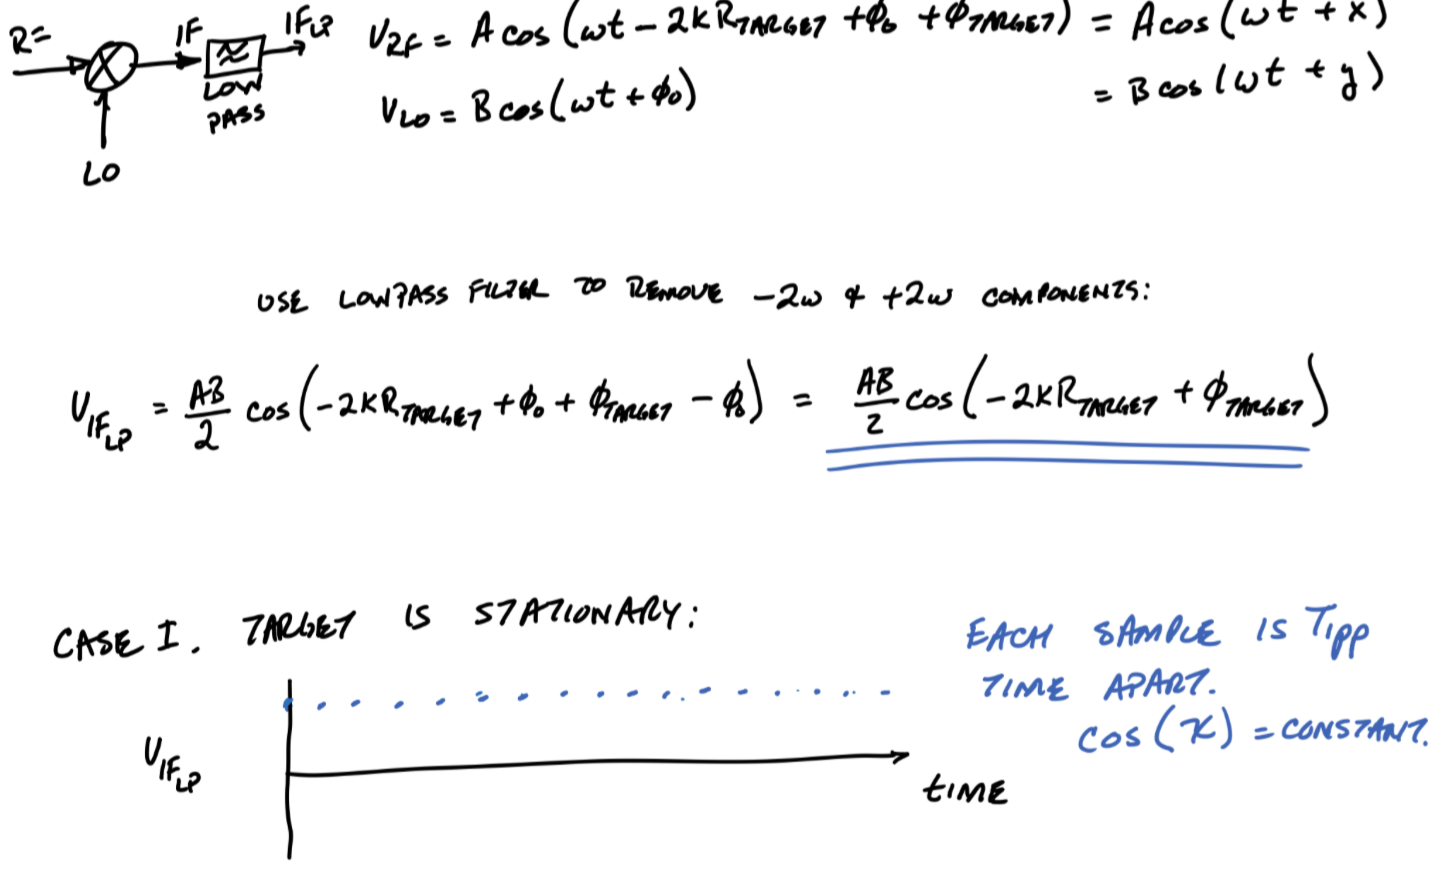 RF IF IF_LP V_RF = A cos(ωt - 2kR_TARGET + ϕ₀ + ϕ_TARGET) = A cos(ωt + x)
LOW PASS V_LO = B cos(ωt + ϕ₀) = B cos(ωt + y)
LO
USE LOWPASS FILTER TO REMOVE -2ω & +2ω COMPONENTS:
V_IF_LP = AB/2 cos(-2kR_TARGET + ϕ₀ + ϕ_TARGET - ϕ₀) = AB/2 cos(-2kR_TARGET + ϕ_TARGET)
CASE I. TARGET IS STATIONARY:
EACH SAMPLE IS T_IPP
TIME APART.
cos(x) = CONSTANT.
V_IF_LP
TIME